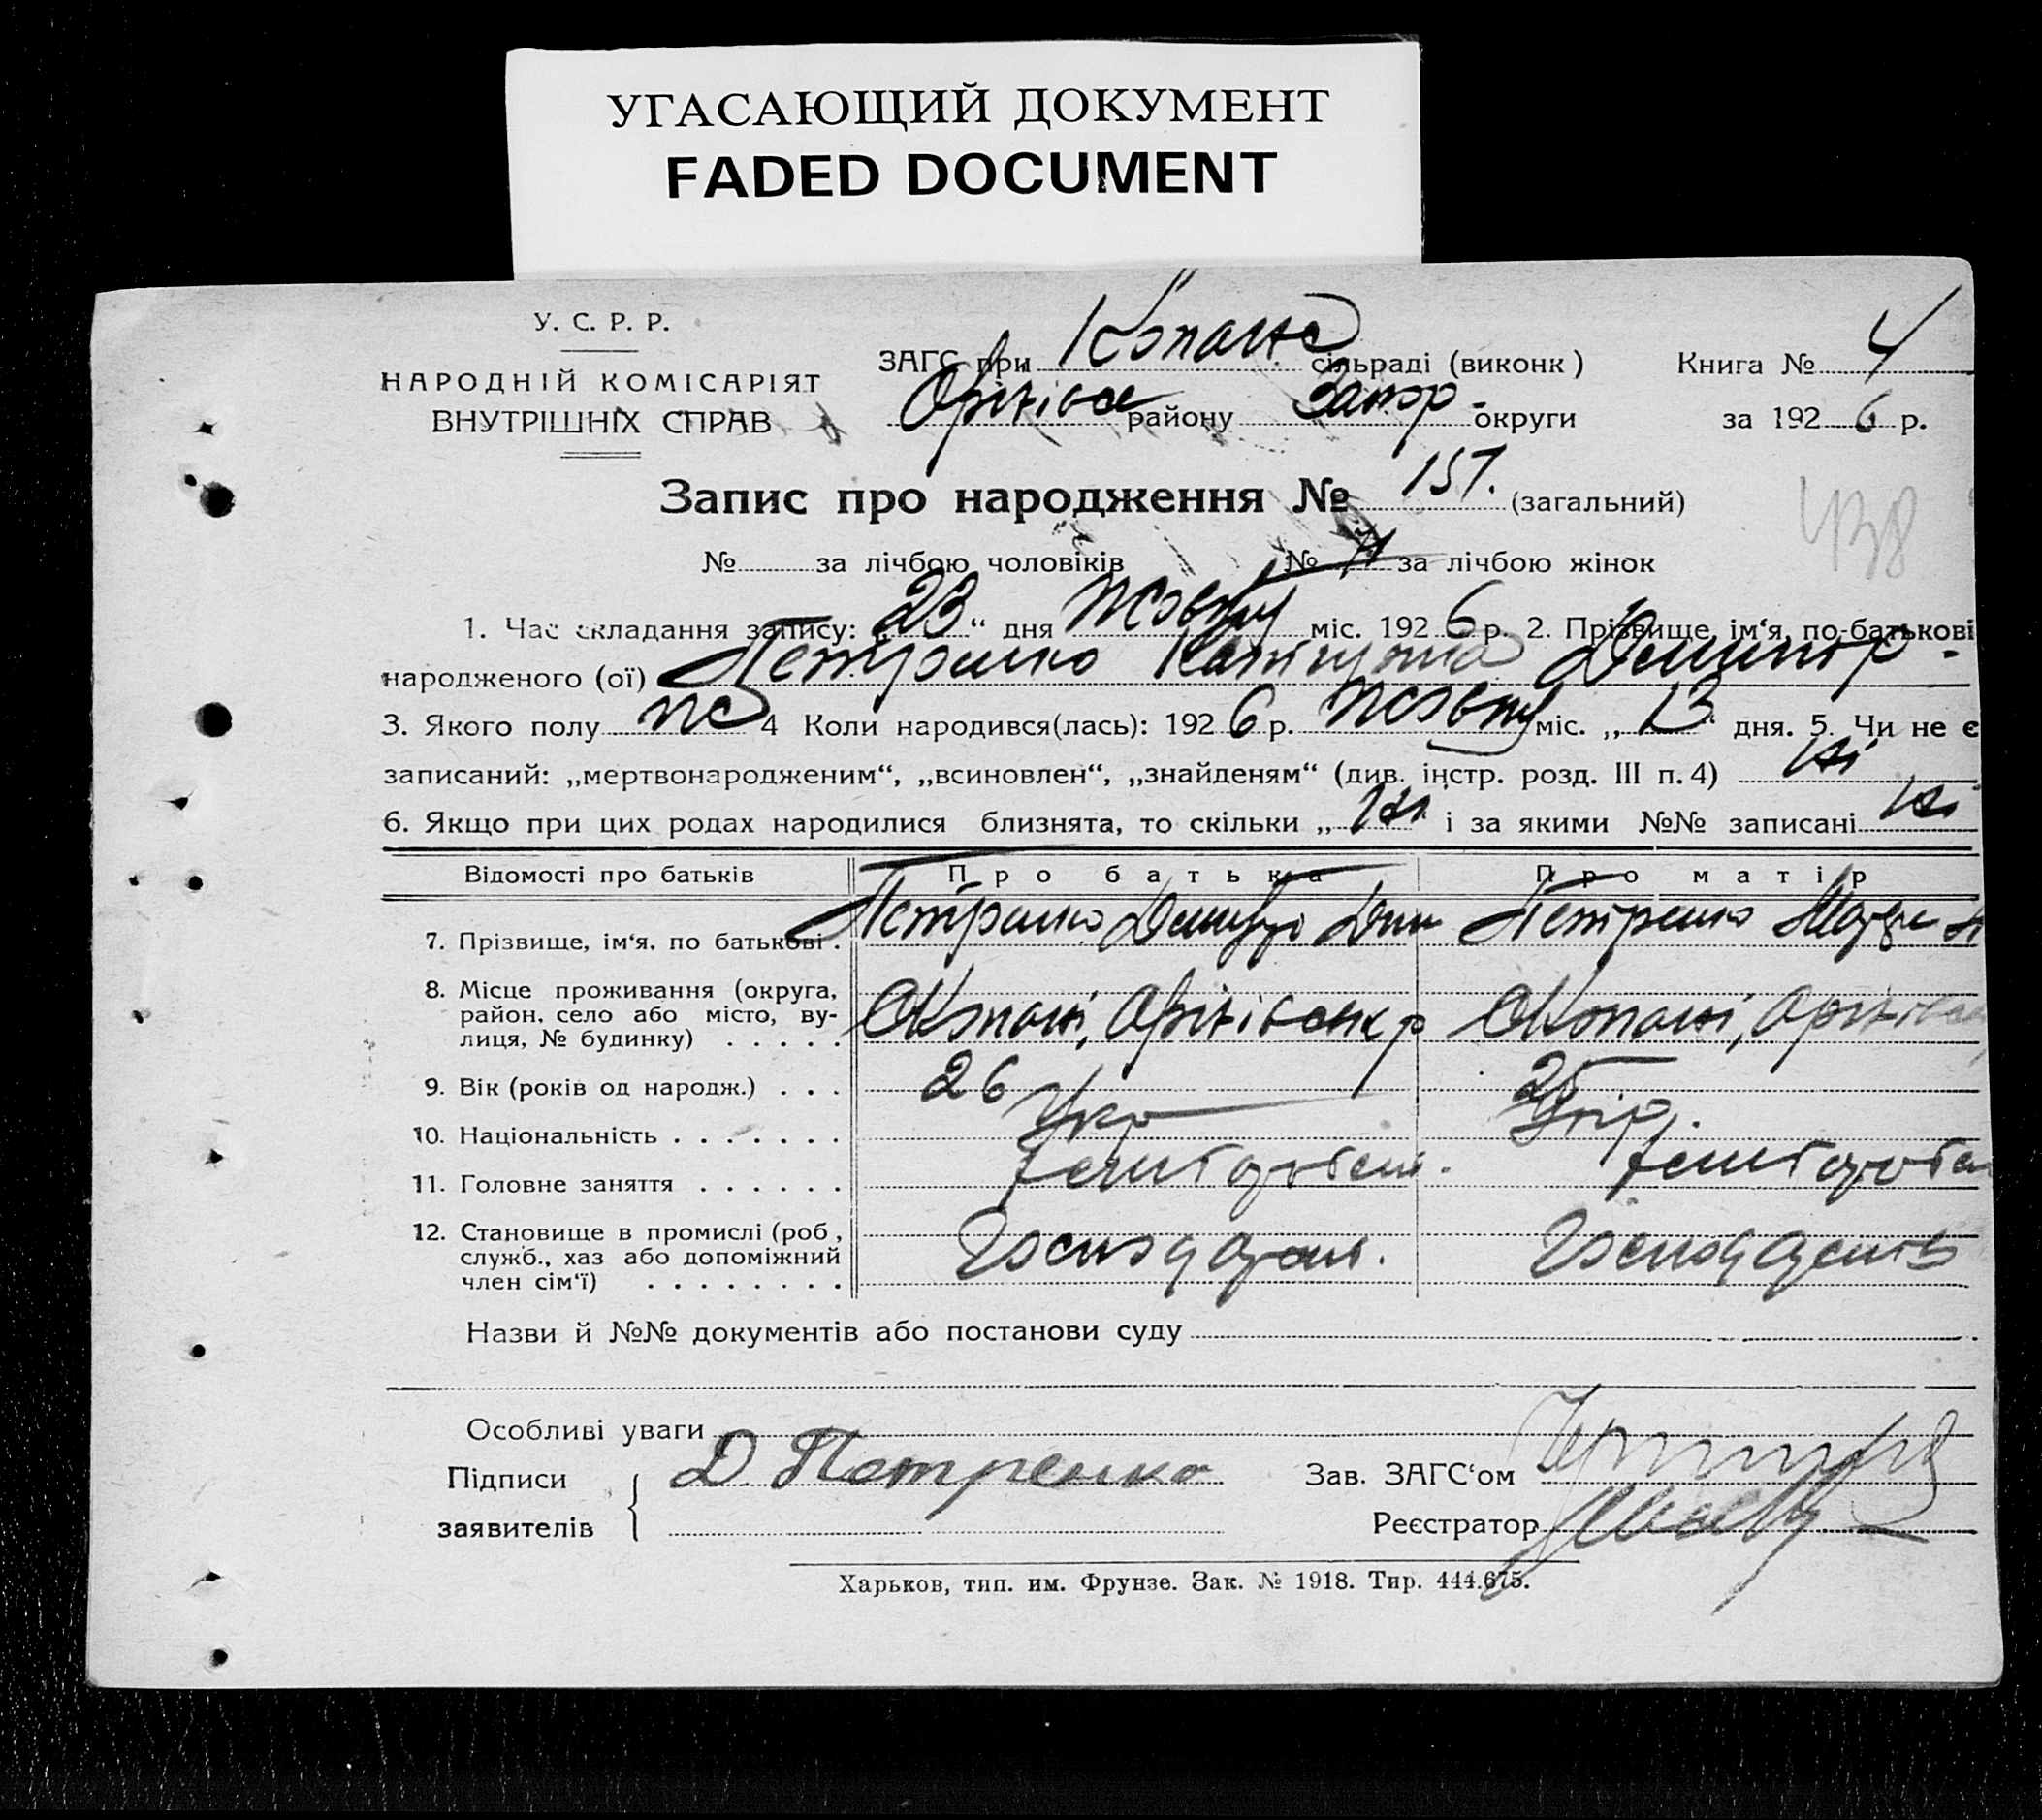 УГАСАЮЩИЙ ДОКУМЕНТ
FADED DOCUMENT
У. С. Р. Р.
НАРОДНІЙ КОМІСАРІЯТ
ВНУТРІШНІХ СПРАВ
ЗАГС при Копане сільраді (виконк)
Оріхівсе району Запор. округи
Книга № 4
за 1926 р.
Запис про народження № 157. (загальний)
438
№ за лічбою чоловіків № 71 за лічбою жінок
1. Час складання запису: „23“ дня жовтня міс. 1926 р. 2. Прізвище ім‘я по-батькові
народженого (ої) Петренко Катерина Дмитр-
3. Якого полу ж 4 Коли народився(лась): 1926 р. жовтня міс. „13“ дня. 5. Чи не є
записаний: „мертвонародженим“, „всиновлен“, „знайденям“ (див. інстр. розд. III п. 4) ні
6. Якщо при цих родах народилися близнята, то скільки „ні“ і за якими №№ записані ні
Відомості про батьків Про батька Про матір
7. Прізвище, ім‘я. по батькові. Петренко Дмитро Петренко
8. Місце проживання (округа, район, село або місто, вулиця, № будинку) . . . . . С Копані, Оріхівськ р С Копані, Оріхівськ
9. Вік (років од народж.) . . . 26 25
10. Національність . . . . . . . Укр Укр.
11. Головне заняття . . . . . . хлібороб хлібороб
12. Становище в промислі (роб, служб., хаз або допоміжний член сім‘ї) . . . . . . . . Господар Господар
Назви й №№ документів або постанови суду
Особливі уваги
Підписи заявителів Д. Петренко
Зав. ЗАГС‘ом
Реєстратор
Харьков, тип. им. Фрунзе. Зак. № 1918. Тир. 444.675.